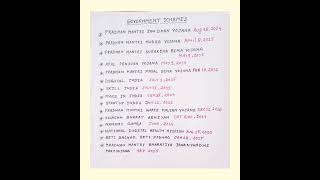 GOVERNMENT SCHEMES
PRADHAN MANTRI JAN DHAN YOJANA Aug 28, 2014
PRADHAN MANTRI MUDRA YOJANA April 8, 2015
PRADHAN MANTRI SURAKSHA BIMA YOJANA
MAY 9, 2015
ATAL PENSION YOJANA MAY 9, 2015
PRADHAN MANTRI FASAL BIMA YOJANA FEB 18, 2016
DIGITAL INDIA JULY 1, 2015
SKILL INDIA JULY 15, 2015
MAKE IN INDIA SEP 25, 2014
STARTUP INDIA JAN 16, 2016
PRADHAN MANTRI GARIB KALYAN YOJANA DEC 2016
SWACHH BHARAT ABHIYAN OCT 2, 2014
NAMAMI GANGE JUNE, 2014
NATIONAL DIGITAL HEALTH MISSION AUG 15, 2020
BETI BACHAO, BETI PADHAO JAN 22, 2015
PRADHAN MANTRI BHARATIYA JANAUSHADHI
PARIYOJANA SEP 2015